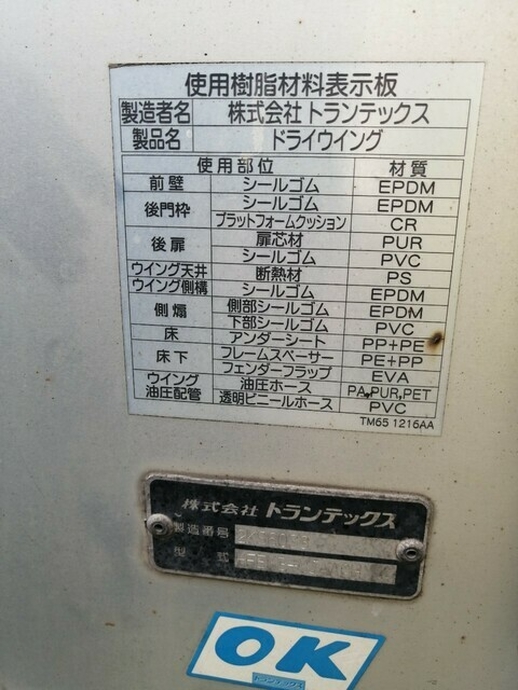 使用樹脂材料表示板
製造者名 株式会社 トランテックス
製品名 ドライウイング
使用部位 材質
前壁 シールゴム EPDM
後門枠 シールゴム EPDM
プラットフォームクッション CR
後扉 扉芯材 PUR
シールゴム PVC
ウイング天井 断熱材 PS
ウイング側構 シールゴム EPDM
側煽 側部シールゴム EPDM
下部シールゴム PVC
床 アンダーシート PP+PE
床下 フレームスペーサー PE+PP
フェンダーフラップ EVA
ウイング油圧配管 油圧ホース PA,PUR,PET
透明ビニールホース PVC
TM65 1216AA
株式会社 トランテックス
製造番号
型式
OK
トランテックス